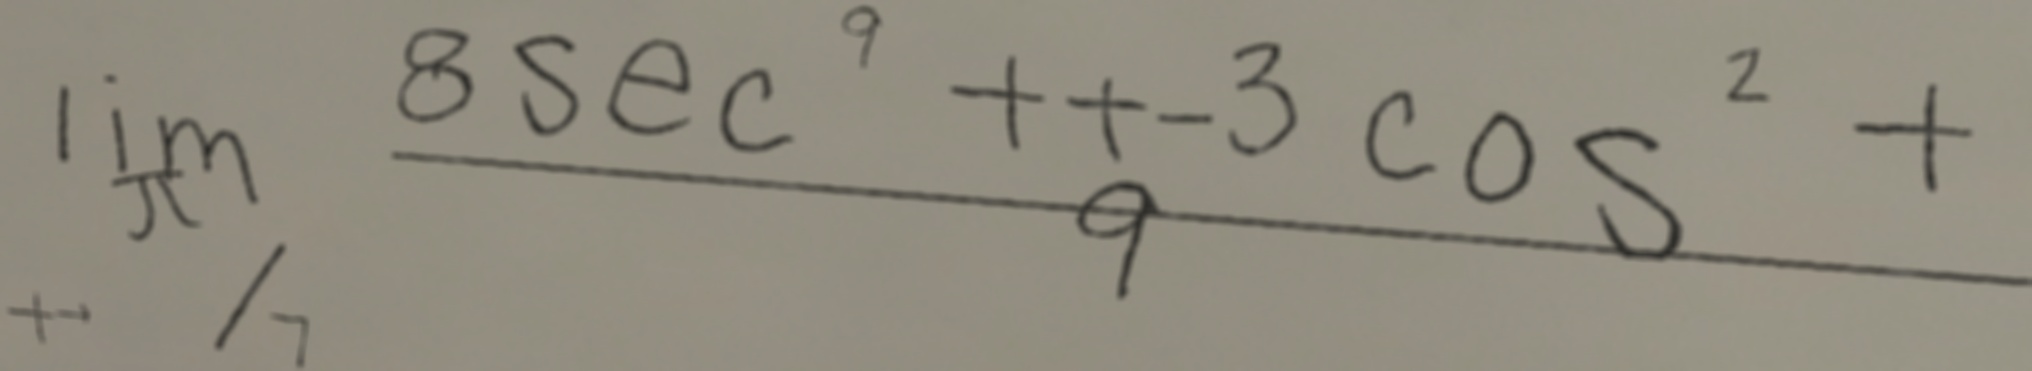 lim_{t→π/7} \frac{8 sec^9 t + -3 cos^2 t}{9}